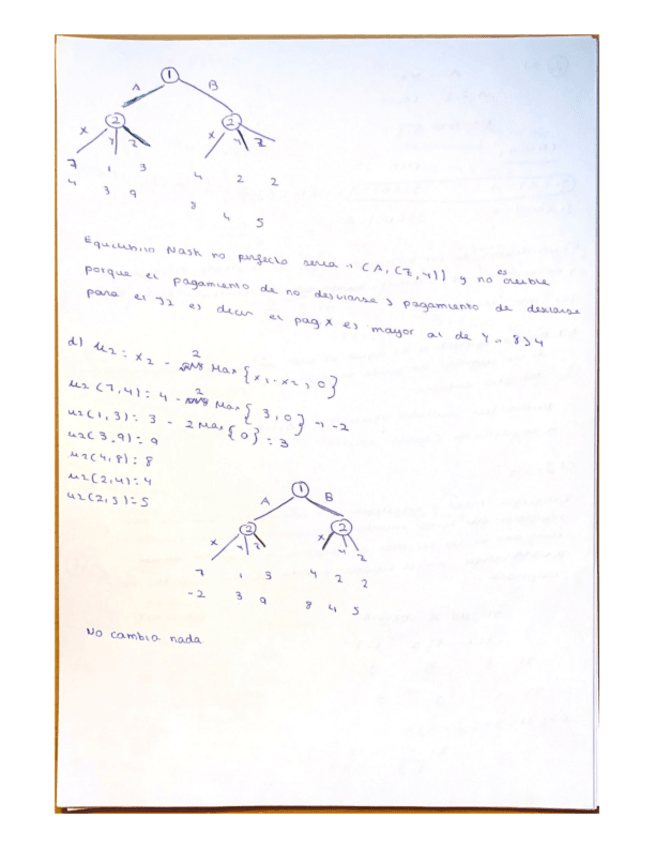 1
A B
2 2
X Y Z X Y Z
7 1 3 4 2 2
4 3 9 8 4 5
Equilibrio Nash no perfecto seria → (A, (Z, Y)) y no es creible
porque el pagamiento de no desviarse > pagamiento de desviarse
para el J2 es decir el pag X es mayor al de Y → 8>4
d) u2: x2 - 2 Max {x1-x2, 0}
u2(7,4): 4 - 2 Max {3,0} → -2
u2(1,3): 3 - 2 Max {0} = 3
u2(3,9) = 9
u2(4,8) = 8
u2(2,4) = 4
u2(2,5) = 5
1
A B
2 2
X Y Z X Y Z
7 1 3 4 2 2
-2 3 9 8 4 5
No cambia nada